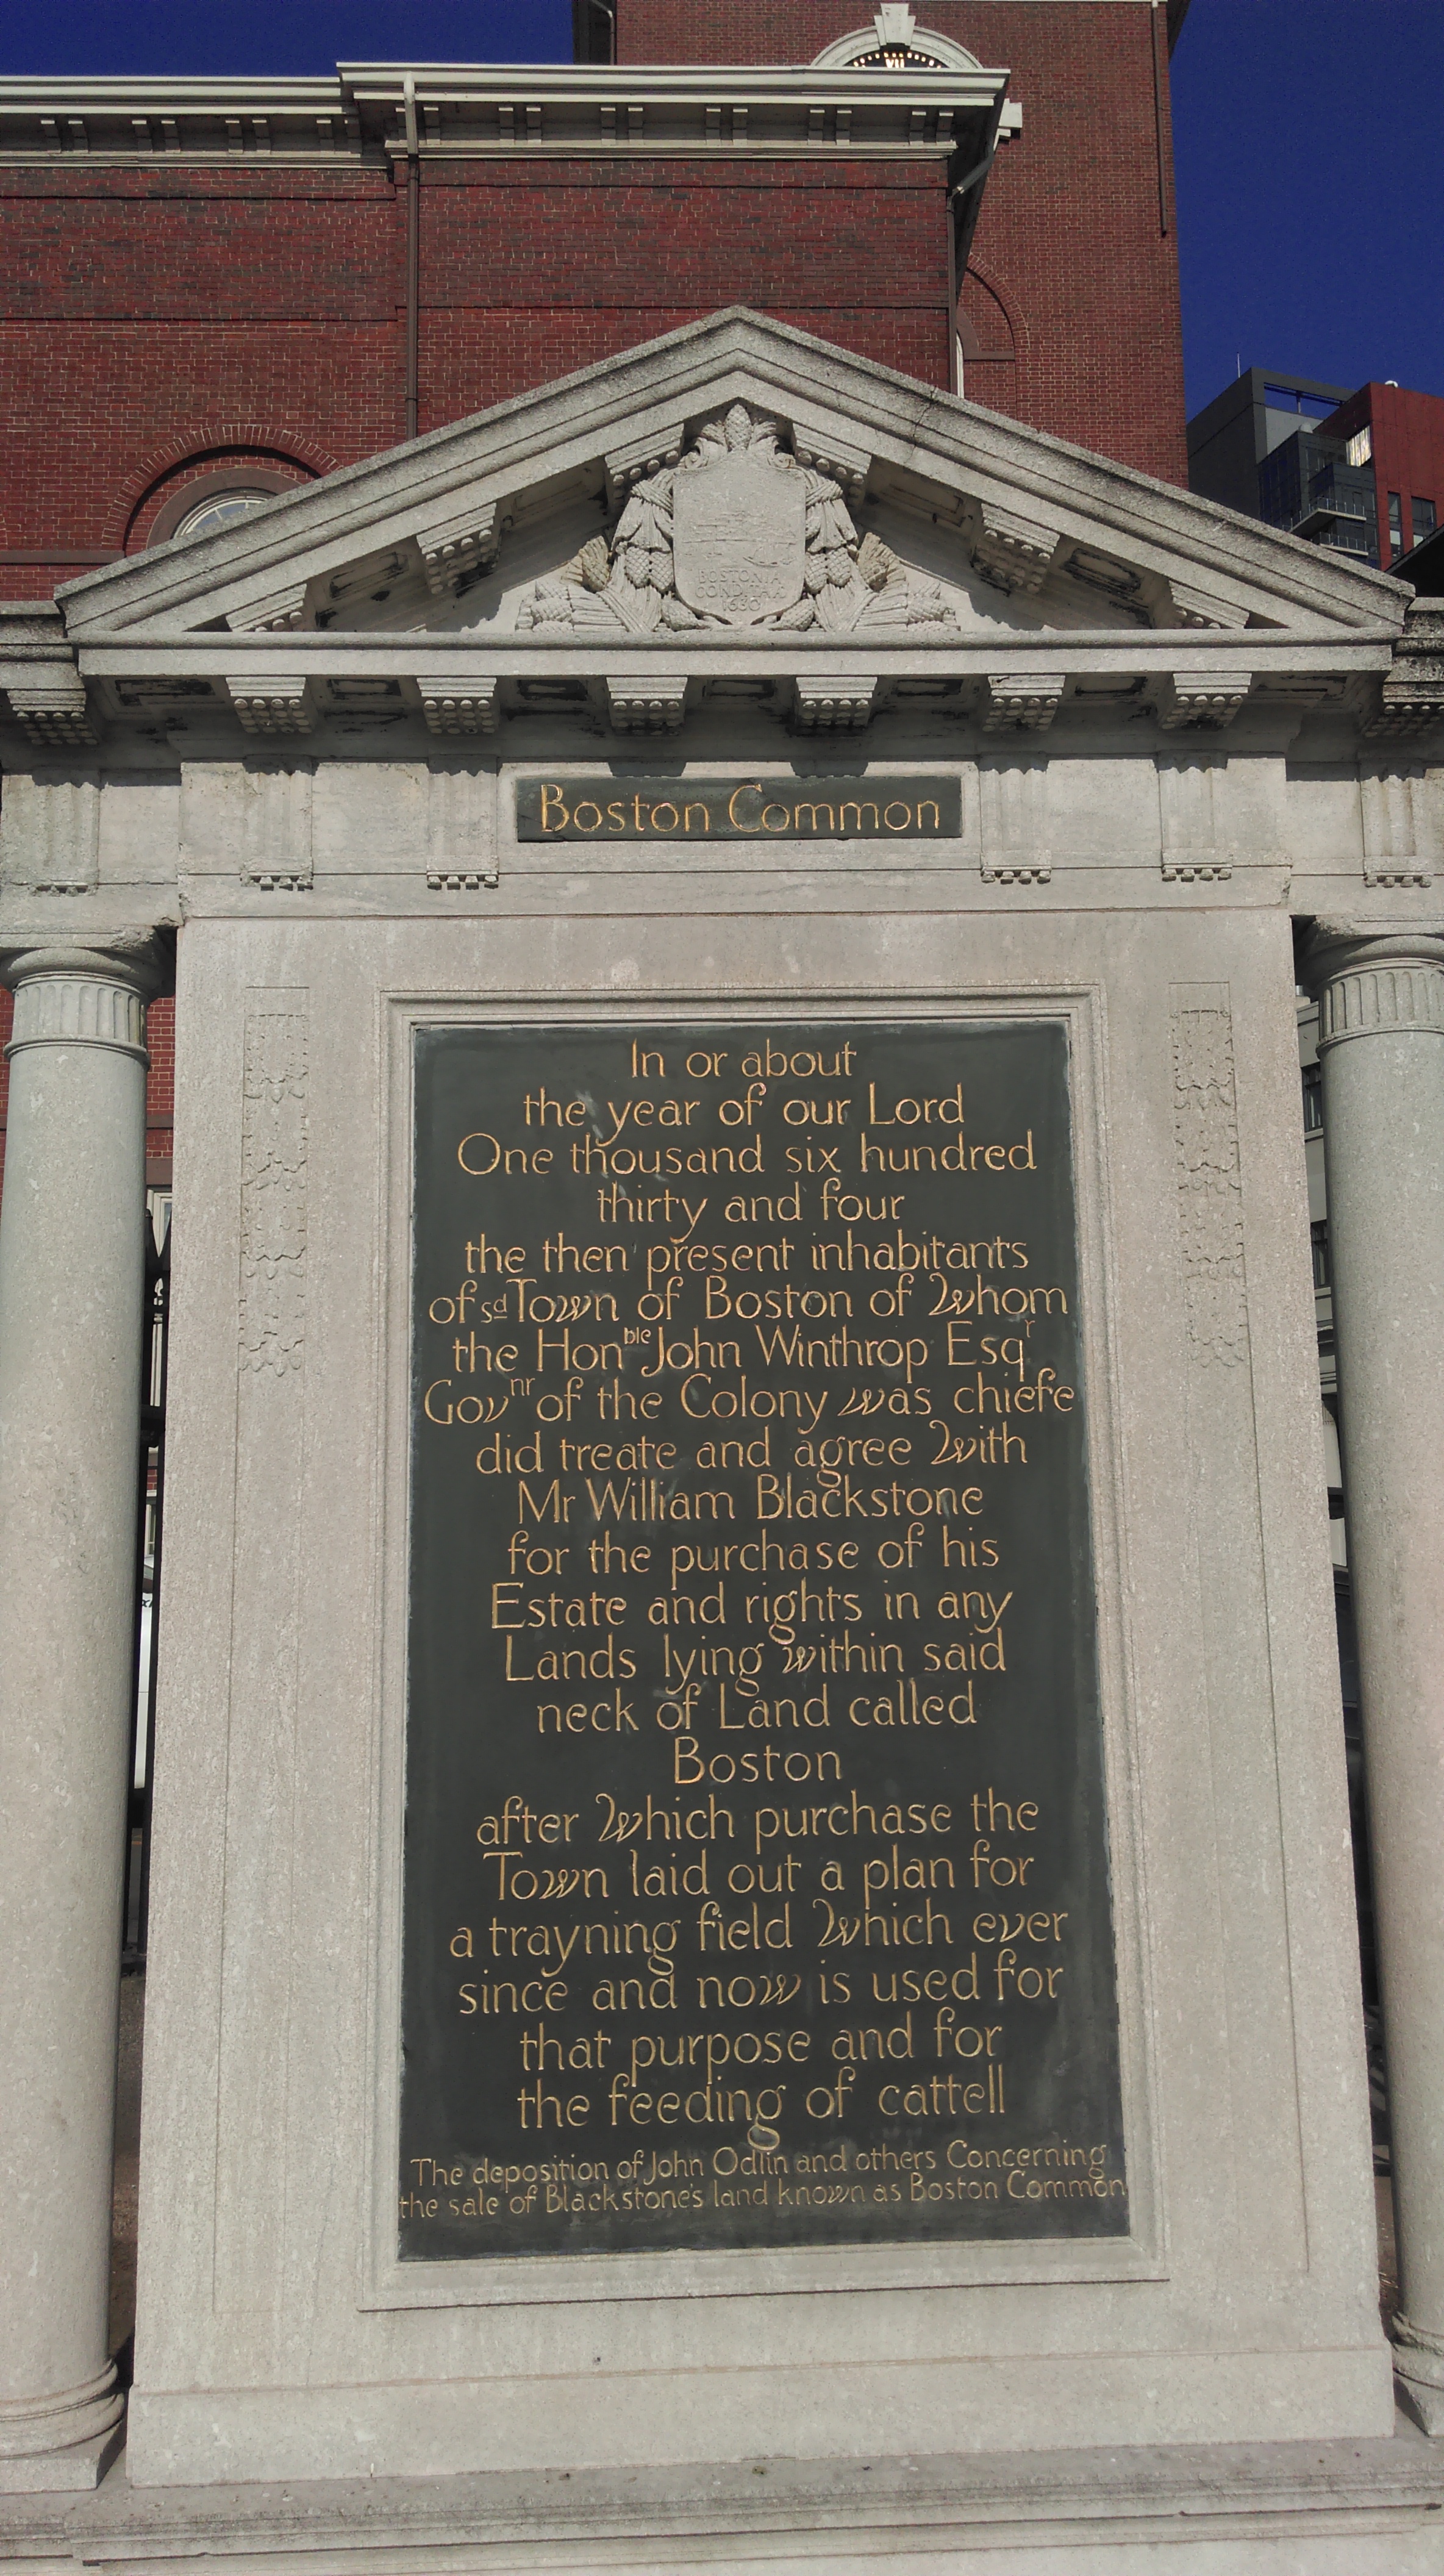 XII
BOSTONIA
CONDITA A.D.
1630
Boston Common
In or about
the year of our Lord
One thousand six hundred
thirty and four
the then present inhabitants
of sd Town of Boston of Whom
the Honble John Winthrop Esqr
Govnr of the Colony was chiefe
did treate and agree With
Mr William Blackstone
for the purchase of his
Estate and rights in any
Lands lying within said
neck of Land called
Boston
after Which purchase the
Town laid out a plan for
a trayning field Which ever
since and now is used for
that purpose and for
the feeding of cattell
The deposition of John Odlin and others Concerning
the sale of Blackstone's land known as Boston Common